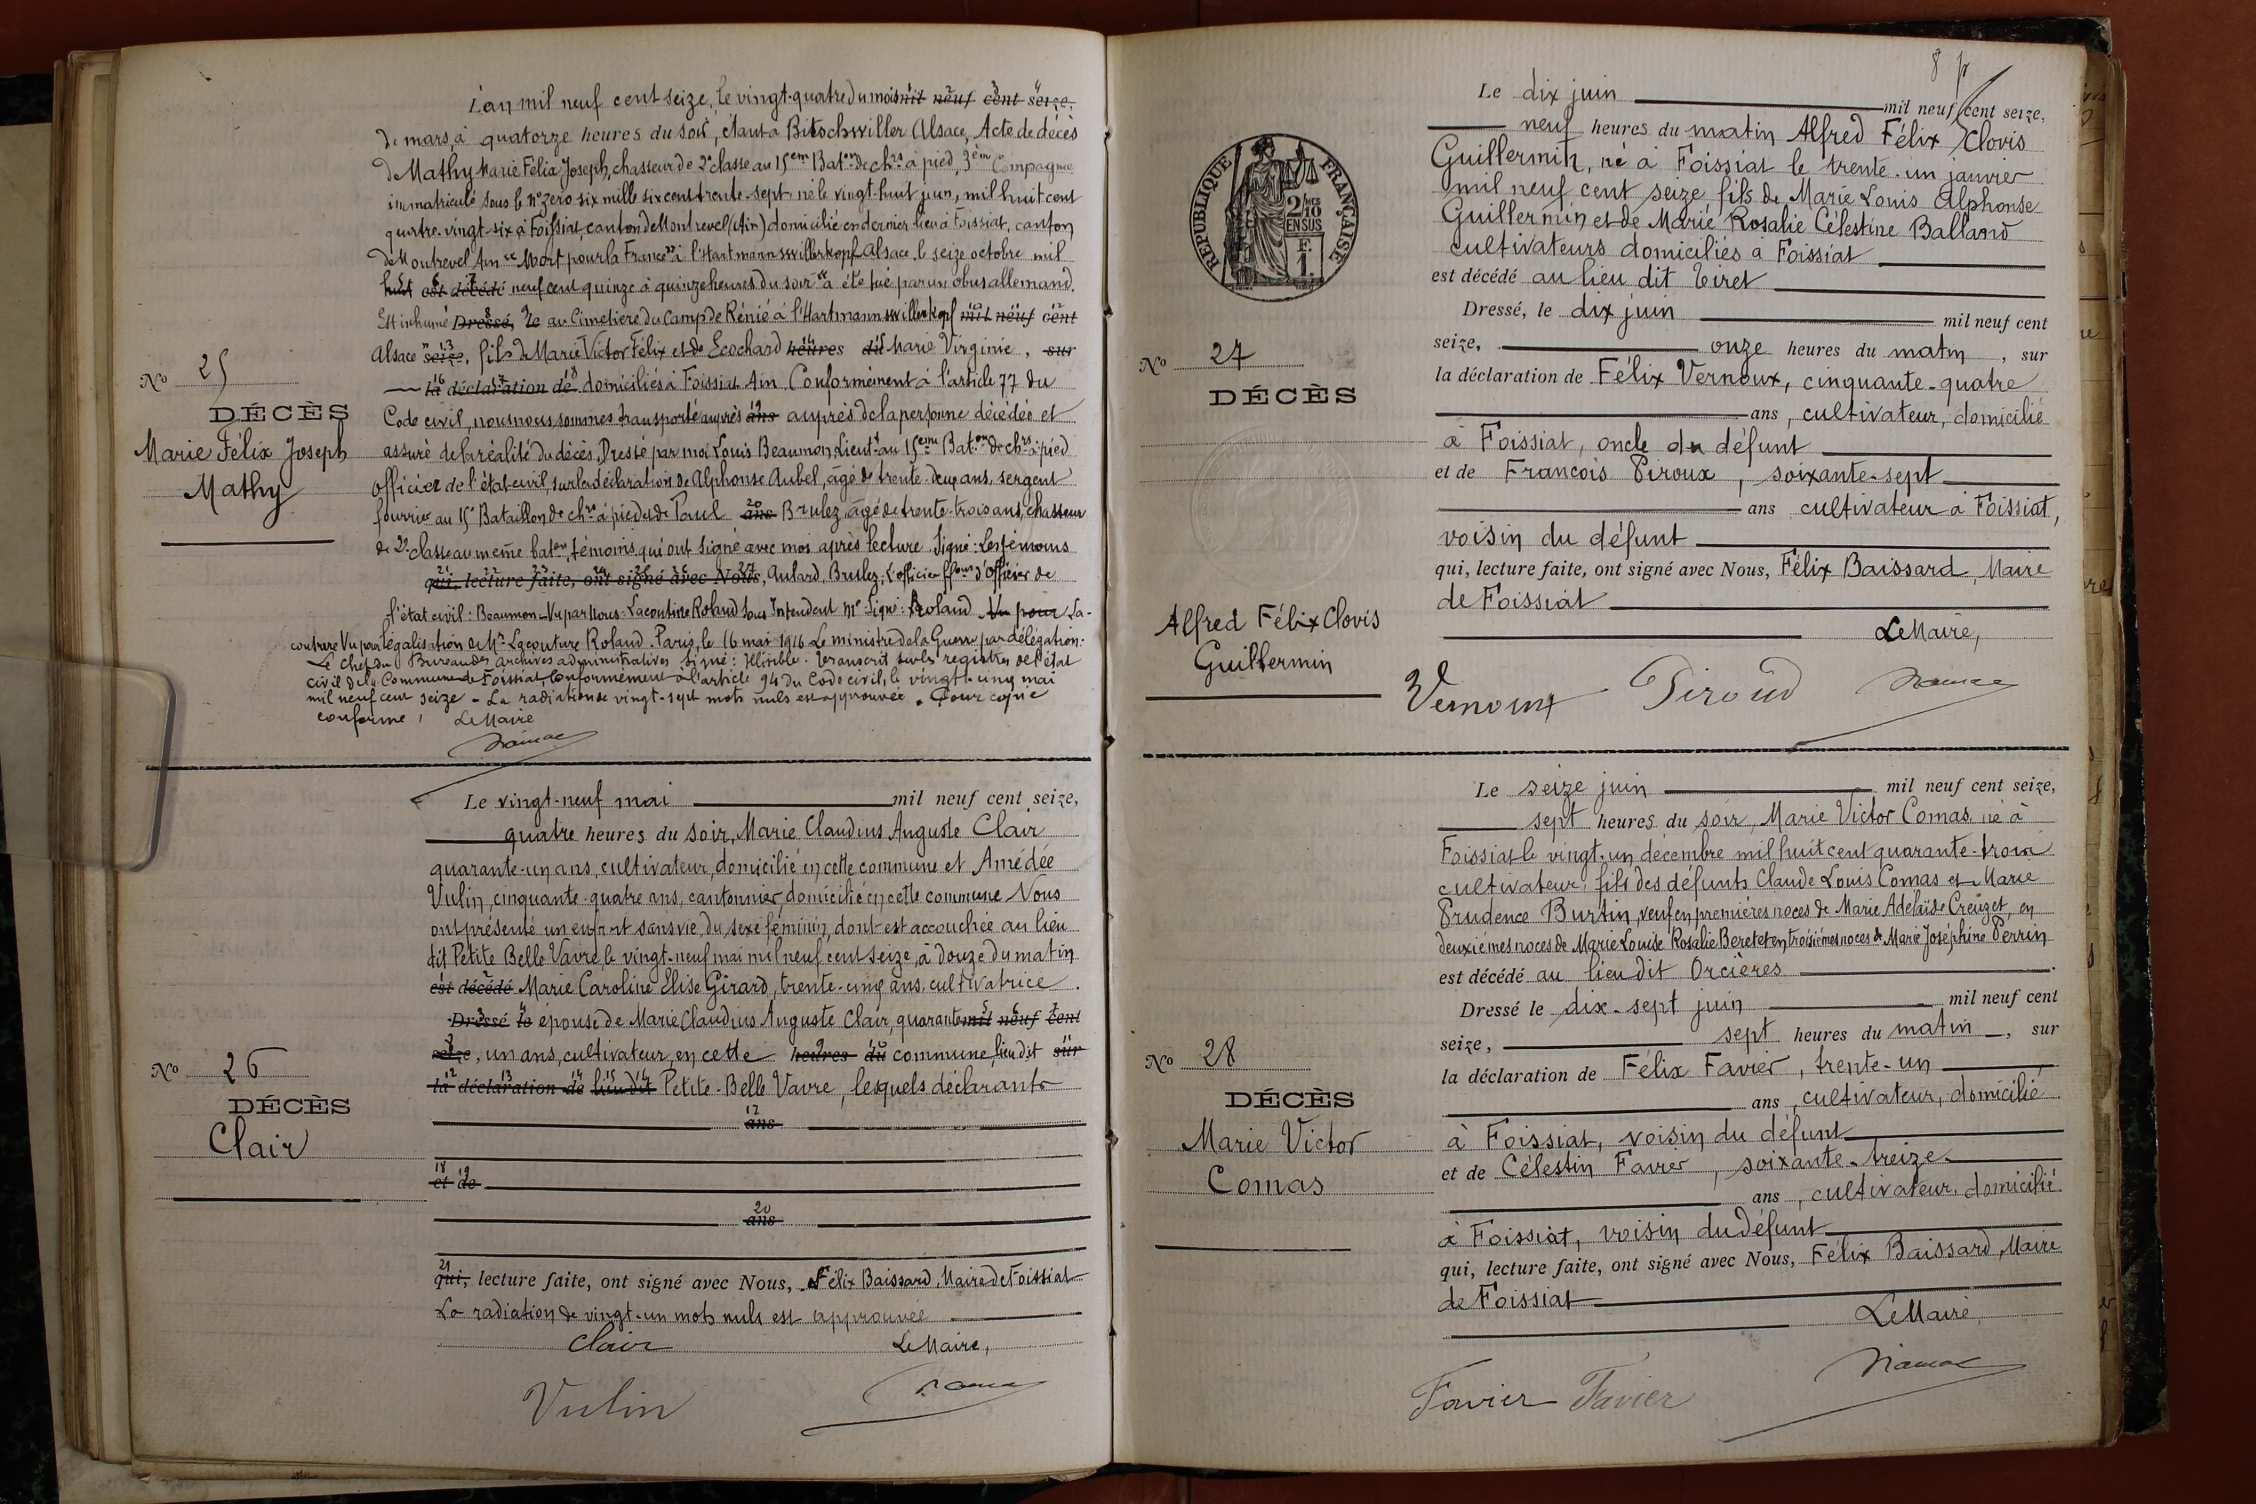 L'an mil neuf cent seize, le vingt-quatre du mois mil neuf cent seize,
de mars, à quatorze heures du soir, étant à Bitschwiller Alsace, Acte de décès
de Mathy Marie Félix Joseph, chasseur de 2e classe au 15eme Baton de chrs à pied, 3ème Compagnie
immatriculé sous le n° zéro six mille six cent trente-sept né le vingt-huit juin, mil huit cent
quatre-vingt-six à Foissiat, canton de Montrevel (Ain) domicilié en dernier lieu à Foissiat, canton
de Montrevel Ain "Mort pour la France" à l'Hartmannswillerkopf Alsace le seize octobre mil
huit est décédé neuf cent quinze à quinze heures du soir a été tué par un obus allemand.
Est inhumé Dressé, le au Cimetière du Camp de Rénié à l'Hartmannswillerkopf mil neuf cent
Alsace " seize, fils de Marie Victor Félix et de Ecochard heures du Marie Virginie, sur
la déclaration de domiciliés à Foissiat Ain Conformément à l'article 77 du
Code civil, nous nous sommes transporté auprès ans auprès de la personne décédée et
assuré de la réalité du décès, Dressé par moi Louis Beaumon Lieut au 15eme Baton de chrs à pied
officier de l'état-civil, sur la déclaration de Alphonse Aubel, âgé de trente-deux ans, sergent
fourrier au 15e Bataillon de chrs à pied et de Paul ans Brulez, âgé de trente-trois ans, chasseur
de 2e classe au même baton, témoins qui ont signé avec moi après lecture. Signé: Les témoins
qui, lecture faite, ont signé avec Nous, Aulard, Brulez; L'officier d'officier de
l'état civil: Beaumon - Vu par Nous: Lacouture Roland Sous Intendant Mre Signé: Roland Vu pour La-
couture Vu pour légalisation de Mr Lacouture Roland. Paris, le 16 mai 1916 Le ministre de la Guerre par délégation:
Le Chef du Bureau des archives administratives Signé: Illisible. Transcrit sur les registres de l'état
civil de la Commune de Foissiat Conformément à l'article 94 du Code civil, le vingt-cinq mai
mil neuf cent seize - La radiation de vingt-sept mots nuls est approuvée. Pour copie
conforme, Le Maire
N° 25
DÉCÈS
Marie Félix Joseph
Mathy
Le vingt-neuf mai mil neuf cent seize,
quatre heures du soir, Marie Claudius Auguste Clair
quarante-un ans, cultivateur, domicilié en cette commune et Amédée
Vulin, cinquante-quatre ans, cantonnier, domicilié en cette commune Nous
ont présenté un enfant sans vie, du sexe féminin, dont est accouchée au lieu
dit Petite Belle Vavre, le vingt-neuf mai mil neuf cent seize, à douze du matin
est décédé Marie Caroline Elise Girard, trente-cinq ans, cultivatrice.
Dressé le épouse de Marie Claudius Auguste Clair, quarante mil neuf cent
seize, un ans, cultivateur, en cette heures du commune, lieu dit sur
la déclaration de lieu dit Petite-Belle Vavre, lesquels déclarants
ans
et de
ans
qui, lecture faite, ont signé avec Nous, Félix Baissard, Maire de Foissiat
La radiation de vingt-un mots nuls est approuvée
Clair Le Maire,
Vulin
N° 26
DÉCÈS
Clair
8
RÉPUBLIQUE FRANÇAISE
2/10 MES EN SUS
F. 1.
Le dix juin mil neuf cent seize,
neuf heures du matin Alfred Félix Clovis
Guillermin, né à Foissiat le trente-un janvier
mil neuf cent seize, fils de Marie Louis Alphonse
Guillermin et de Marie Rosalie Célestine Balland
cultivateurs domiciliés à Foissiat
est décédé au lieu dit Tiret
Dressé, le dix juin mil neuf cent
seize, onze heures du matin, sur
la déclaration de Félix Vernoux, cinquante-quatre
ans, cultivateur, domicilié
à Foissiat, oncle du défunt
et de François Piroux, soixante-sept
ans cultivateur à Foissiat,
voisin du défunt
qui, lecture faite, ont signé avec Nous, Félix Baissard, Maire
de Foissiat
Le Maire,
Vernoux Piroud
N° 27
DÉCÈS
Alfred Félix Clovis
Guillermin
Le seize juin mil neuf cent seize,
sept heures du soir, Marie Victor Comas, né à
Foissiat le vingt-un décembre mil huit cent quarante-trois
cultivateur, fils des défunts Claude Louis Comas et Marie
Prudence Burtin, veuf en premières noces de Marie Adélaïde Creuzet, en
deuxièmes noces de Marie Louise Rosalie Beretet en troisièmes noces de Marie Joséphine Perrin
est décédé au lieu dit Orcières
Dressé le dix-sept juin mil neuf cent
seize, sept heures du matin, sur
la déclaration de Félix Favier, trente-un
ans, cultivateur, domicilié
à Foissiat, voisin du défunt
et de Célestin Favier, soixante-treize
ans, cultivateur, domicilié
à Foissiat, voisin du défunt
qui, lecture faite, ont signé avec Nous, Félix Baissard, Maire
de Foissiat
Le Maire,
Favier Favier
N° 28
DÉCÈS
Marie Victor
Comas